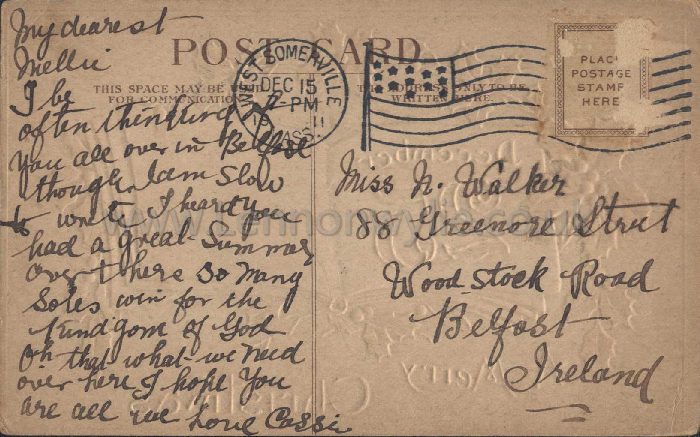 My dearest
Mellie
I be
often thinking
You all over in Belfast
though I am Slow
to write I heard you
had a great Summer
over there So many
Soles win for the
kindgom of God
Oh that what we need
over here I hope You
are all we Love Cassie
POST CARD
THIS SPACE MAY BE USED
FOR COMMUNICATION
THE ADDRESS ONLY TO BE
WRITTEN HERE.
WEST SOMERVILLE
DEC 15
-PM
11
MASS.
PLACE
POSTAGE
STAMP
HERE
Miss N. Walker
88 Greenore Street
Wood stock Road
Belfast
Ireland
December
Merry
Christmas
www.Lennonwylie.co.uk